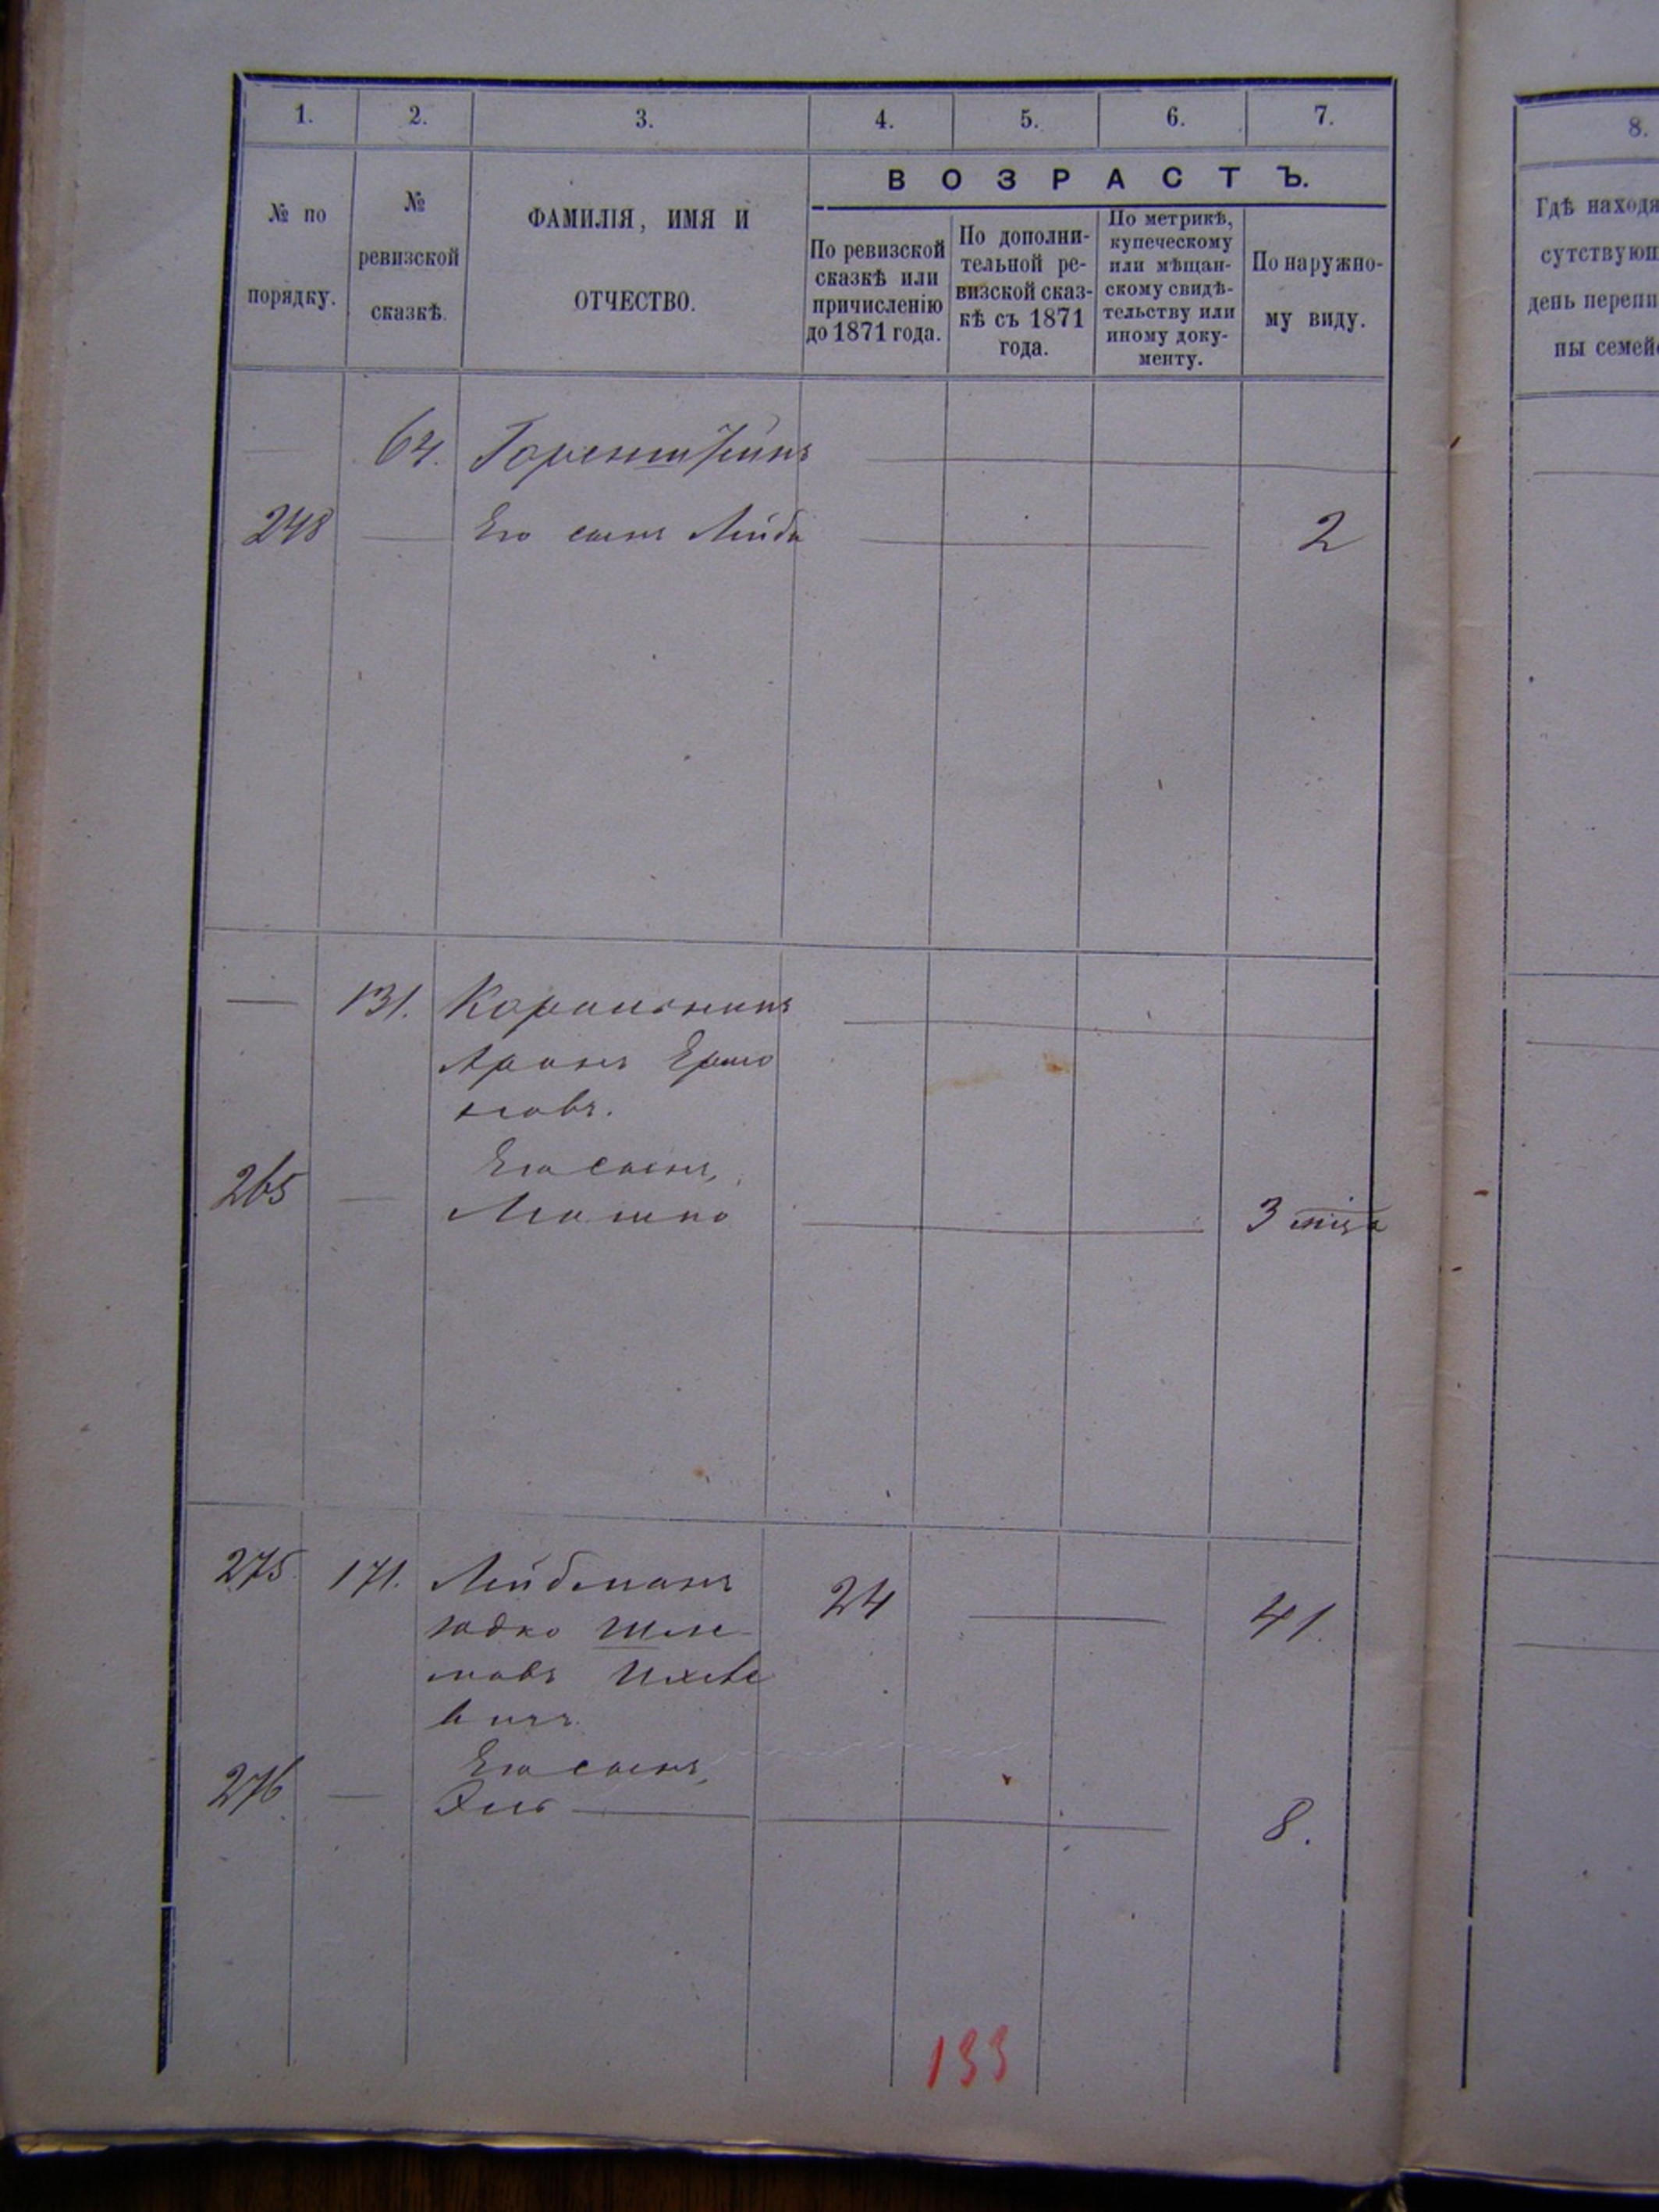 1. 2. 3. 4. 5. 6. 7.
№ по порядку.
№ ревизской сказкѣ.
ФАМИЛІЯ, ИМЯ И ОТЧЕСТВО.
ВОЗРАСТЪ.
По ревизской сказкѣ или причисленію до 1871 года.
По дополнительной ревизской сказкѣ съ 1871 года.
По метрикѣ, купеческому или мѣщанскому свидѣтельству или иному документу.
По наружному виду.
64. Горенштейнъ
248 Его сынъ Лейба 2
131.
Аронъ Ершо
ковъ.
Его сынъ,
265 Мошко 3 мѣс
275. 171. Лейбманъ 24 41.
Юдко Шле
мовъ
вичъ.
Его сынъ,
276 Эль 8.
133
8.
Гдѣ находя
сутствующ
день перепи
пы семей